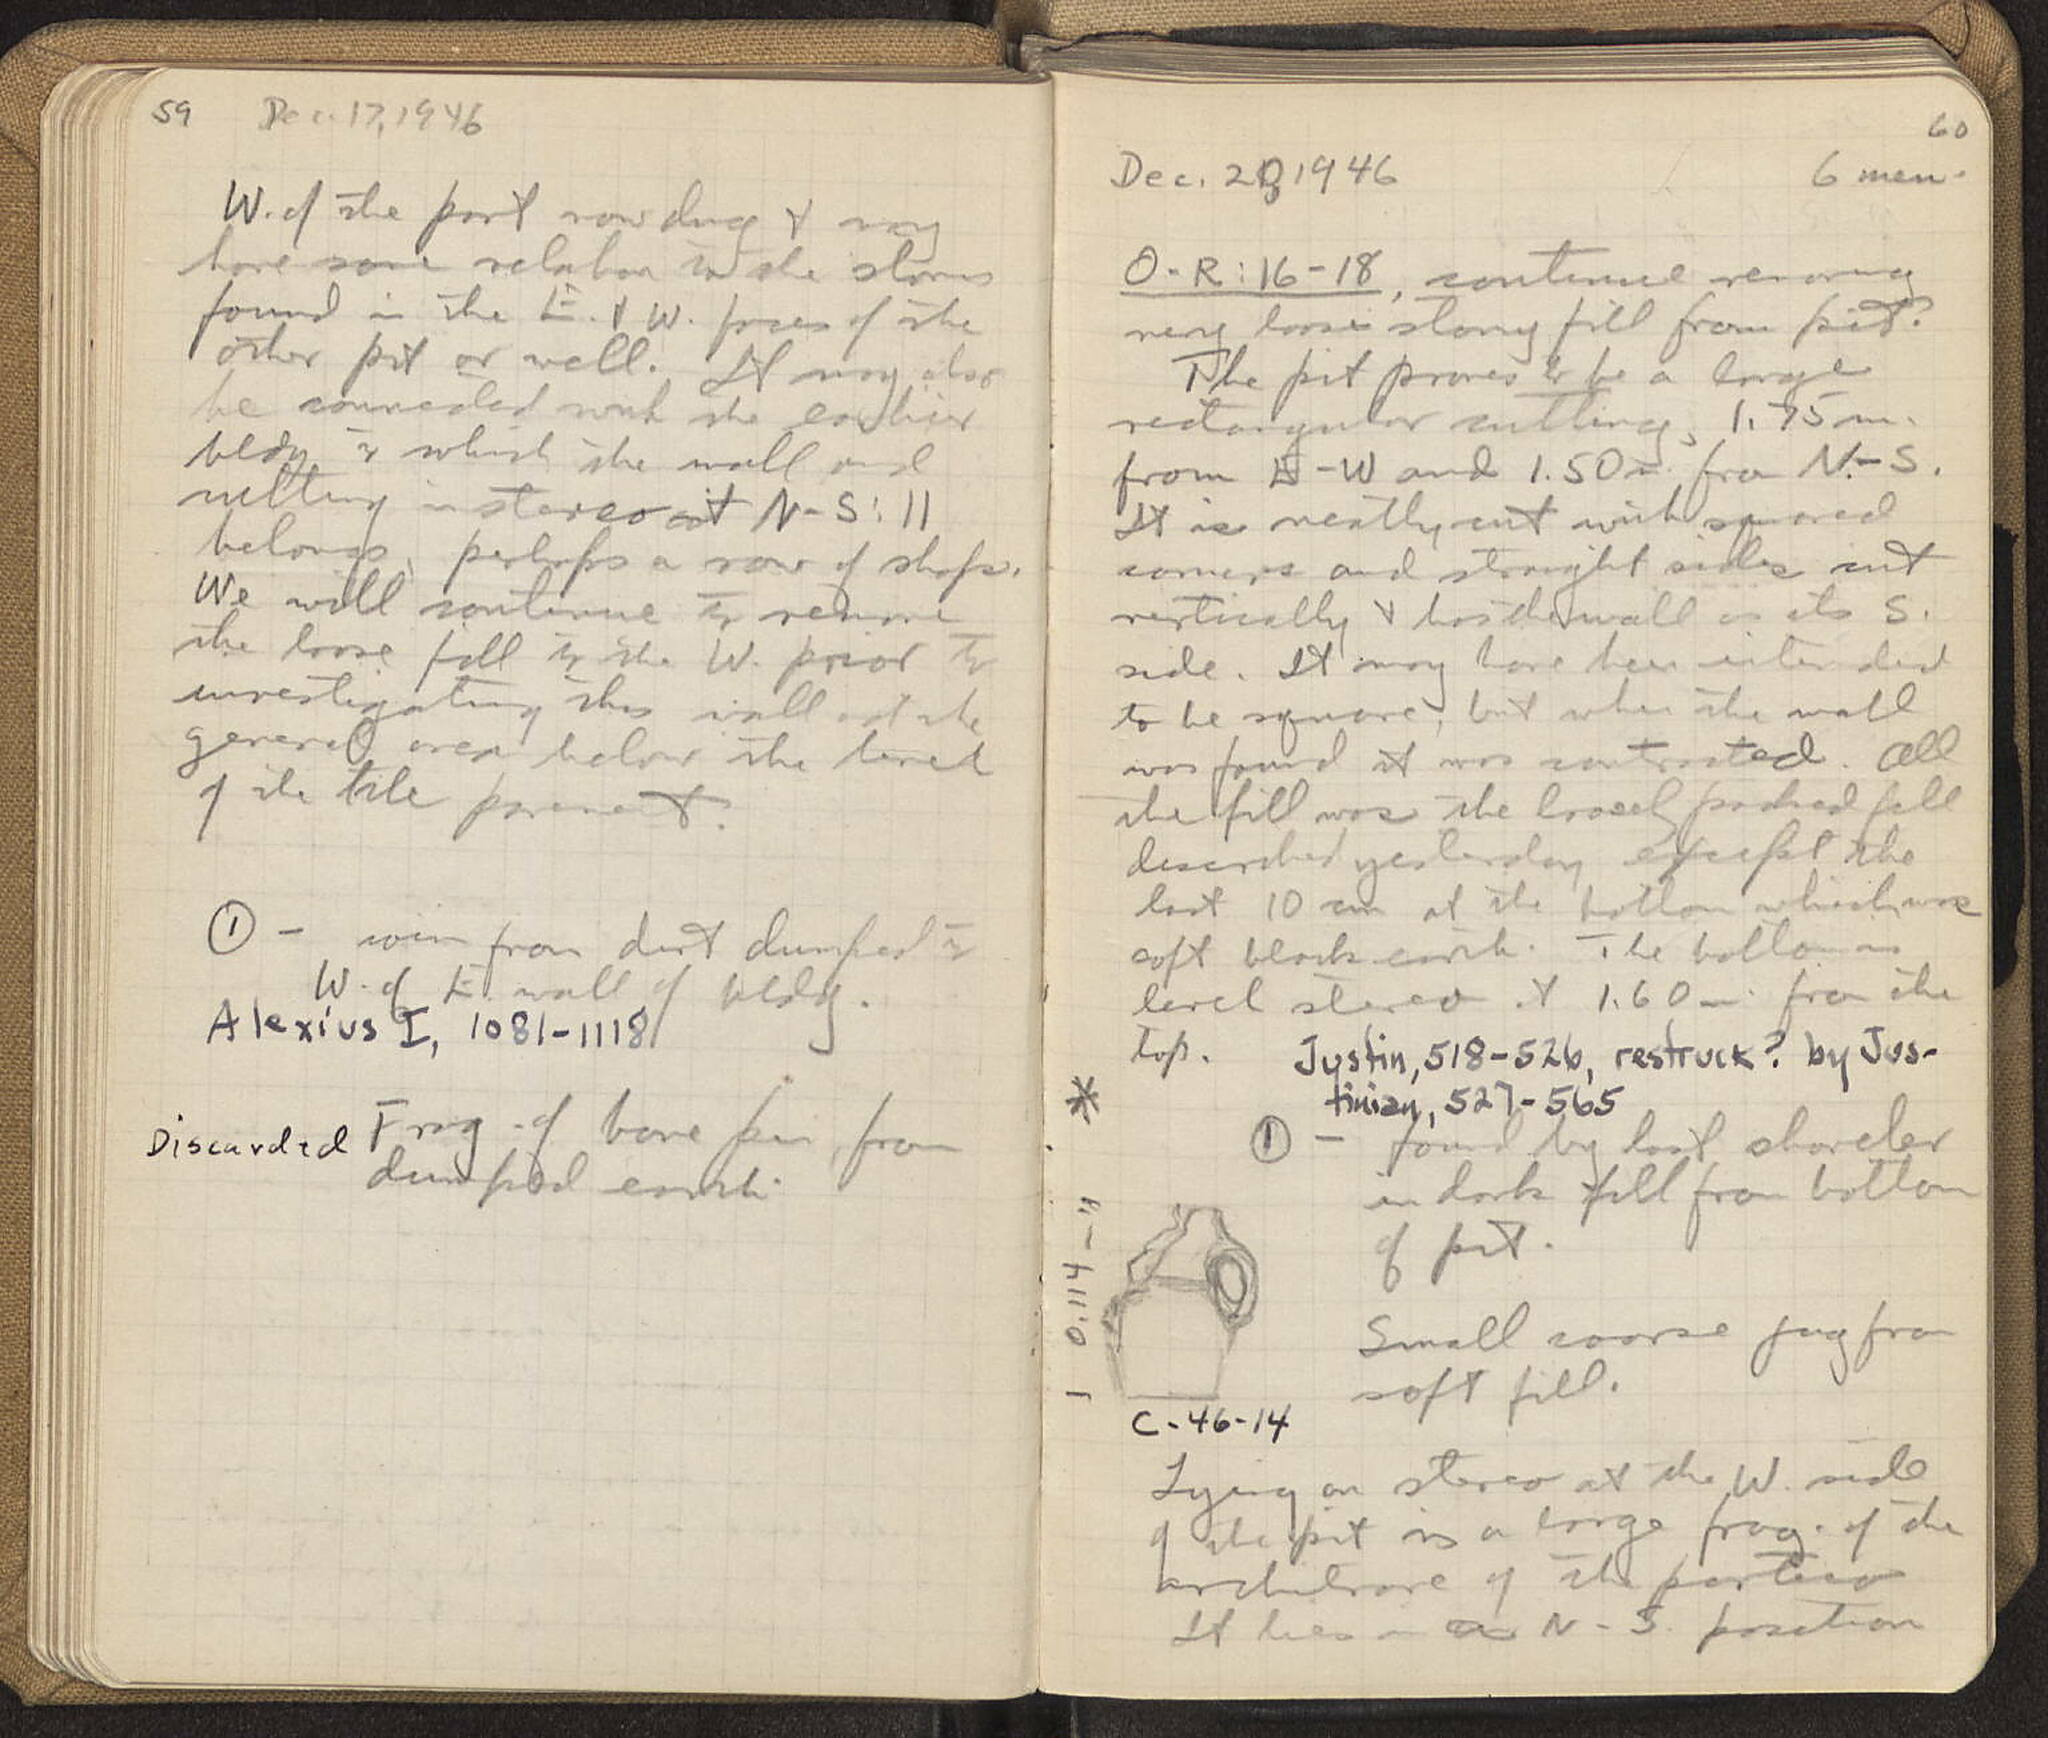 59 Dec. 17, 1946
W. of the part now dug & may
have some relation to the stones
found in the E. & W. faces of the
other pit or well. It may also
be connected with the earlier
bldg to which the wall and
cutting in stereo at N-S:11
belongs, perhaps a row of shops.
We will continue to remove
the loose fill to the W. prior to
investigating this wall and the
general area below the level
of the tile pavement.
① - coin from dirt dumped to
W. of E. wall of bldg.
Alexius I, 1081-1118
Discarded Frag. of bone pin, from
dumped earth.
60
Dec. 1946 6 men.
O-R:16-18, continue removing
very loose stony fill from pit.
The pit proves to be a large
rectangular cutting, 1.75 m.
from E-W and 1.50 m. from N-S.
It is neatly cut with squared
corners and straight sides cut
vertically & has the wall as its S.
side. It may have been intended
to be square, but when the wall
was found it was contracted. All
the fill was the loosely packed fill
described yesterday except the
last 10 cm at the bottom which was
soft black earth. The bottom is
level stereo at 1.60 m. from the
top. Justin, 518-526, restruck? by Jus-
tinian, 527-565
*
① - found by last shoveler
in dark fill from bottom
of pit.
0.114
Small coarse jug from
soft fill.
C-46-14
Lying on stereo at the W. side
of the pit is a large frag. of the
architrave of the portico
It lies in a N-S. position